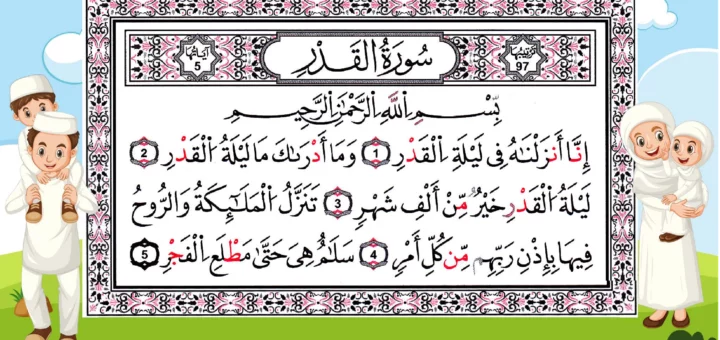 آياتها 5 سُورَةُ الْقَدْرِ ترتيبها 97
بِسْمِ اللَّهِ الرَّحْمَٰنِ الرَّحِيمِ
إِنَّا أَنزَلْنَاهُ فِي لَيْلَةِ الْقَدْرِ 1 وَمَا أَدْرَاكَ مَا لَيْلَةُ الْقَدْرِ 2
لَيْلَةُ الْقَدْرِ خَيْرٌ مِّنْ أَلْفِ شَهْرٍ 3 تَنَزَّلُ الْمَلَائِكَةُ وَالرُّوحُ
فِيهَا بِإِذْنِ رَبِّهِم مِّن كُلِّ أَمْرٍ 4 سَلَامٌ هِيَ حَتَّىٰ مَطْلَعِ الْفَجْرِ 5